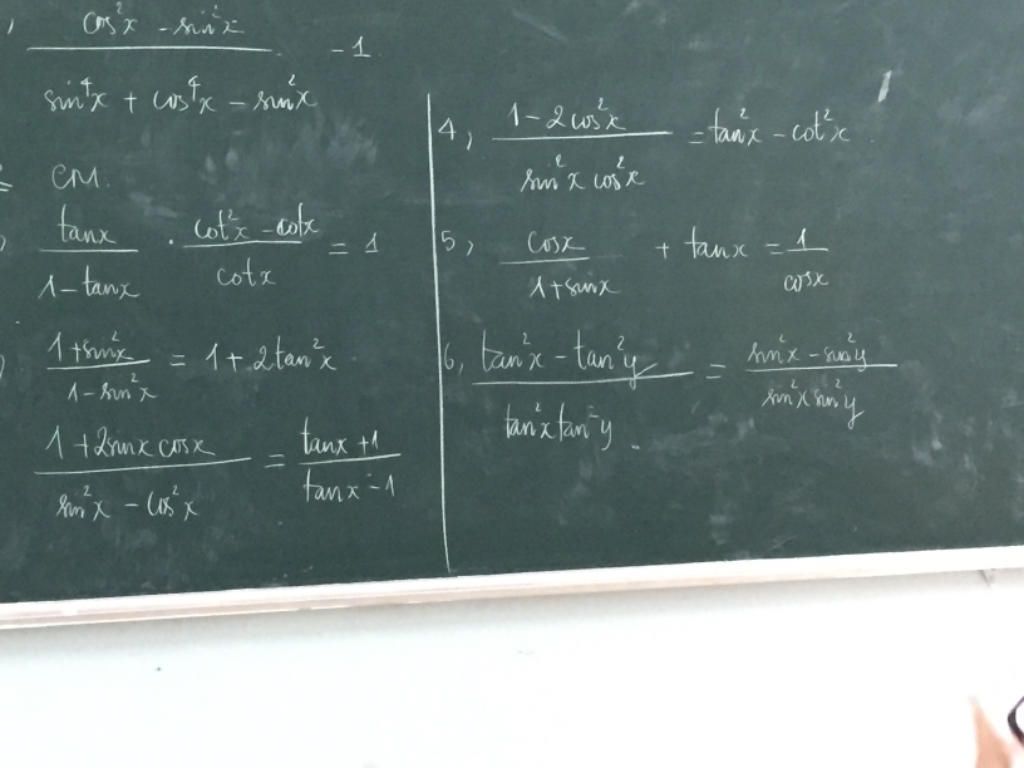 cos²x - sin²x / sin⁴x + cos⁴x - sin²x - 1
CM.
tanx / 1 - tanx · cot²x - cotx / cotx = 1
1 + sin²x / 1 - sin²x = 1 + 2tan²x
1 + 2sinx cosx / sin²x - cos²x = tanx + 1 / tanx - 1
4, 1 - 2cos²x / sin²x cos²x = tan²x - cot²x
5, cosx / 1 + sinx + tanx = 1 / cosx
6, tan²x - tan²y / tan²x tan²y = sin²x - sin²y / sin²x sin²y